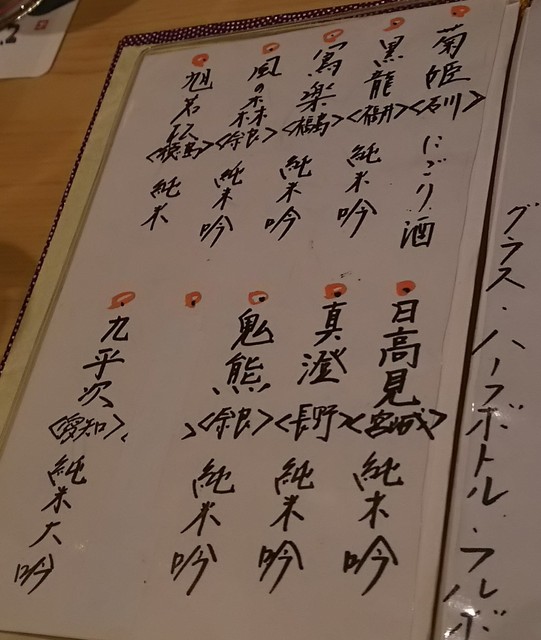 グラス・ハーフボトル・フルボ
菊姫<石川>にごり酒
黒龍<福井>純米吟
寫楽<福島>純米吟
風の森<奈良>純米吟
旭若松<徳島>純米
日高見<宮城>純米吟
真澄<長野>純米吟
鬼熊<奈良>純米吟
九平次<愛知>純米大吟